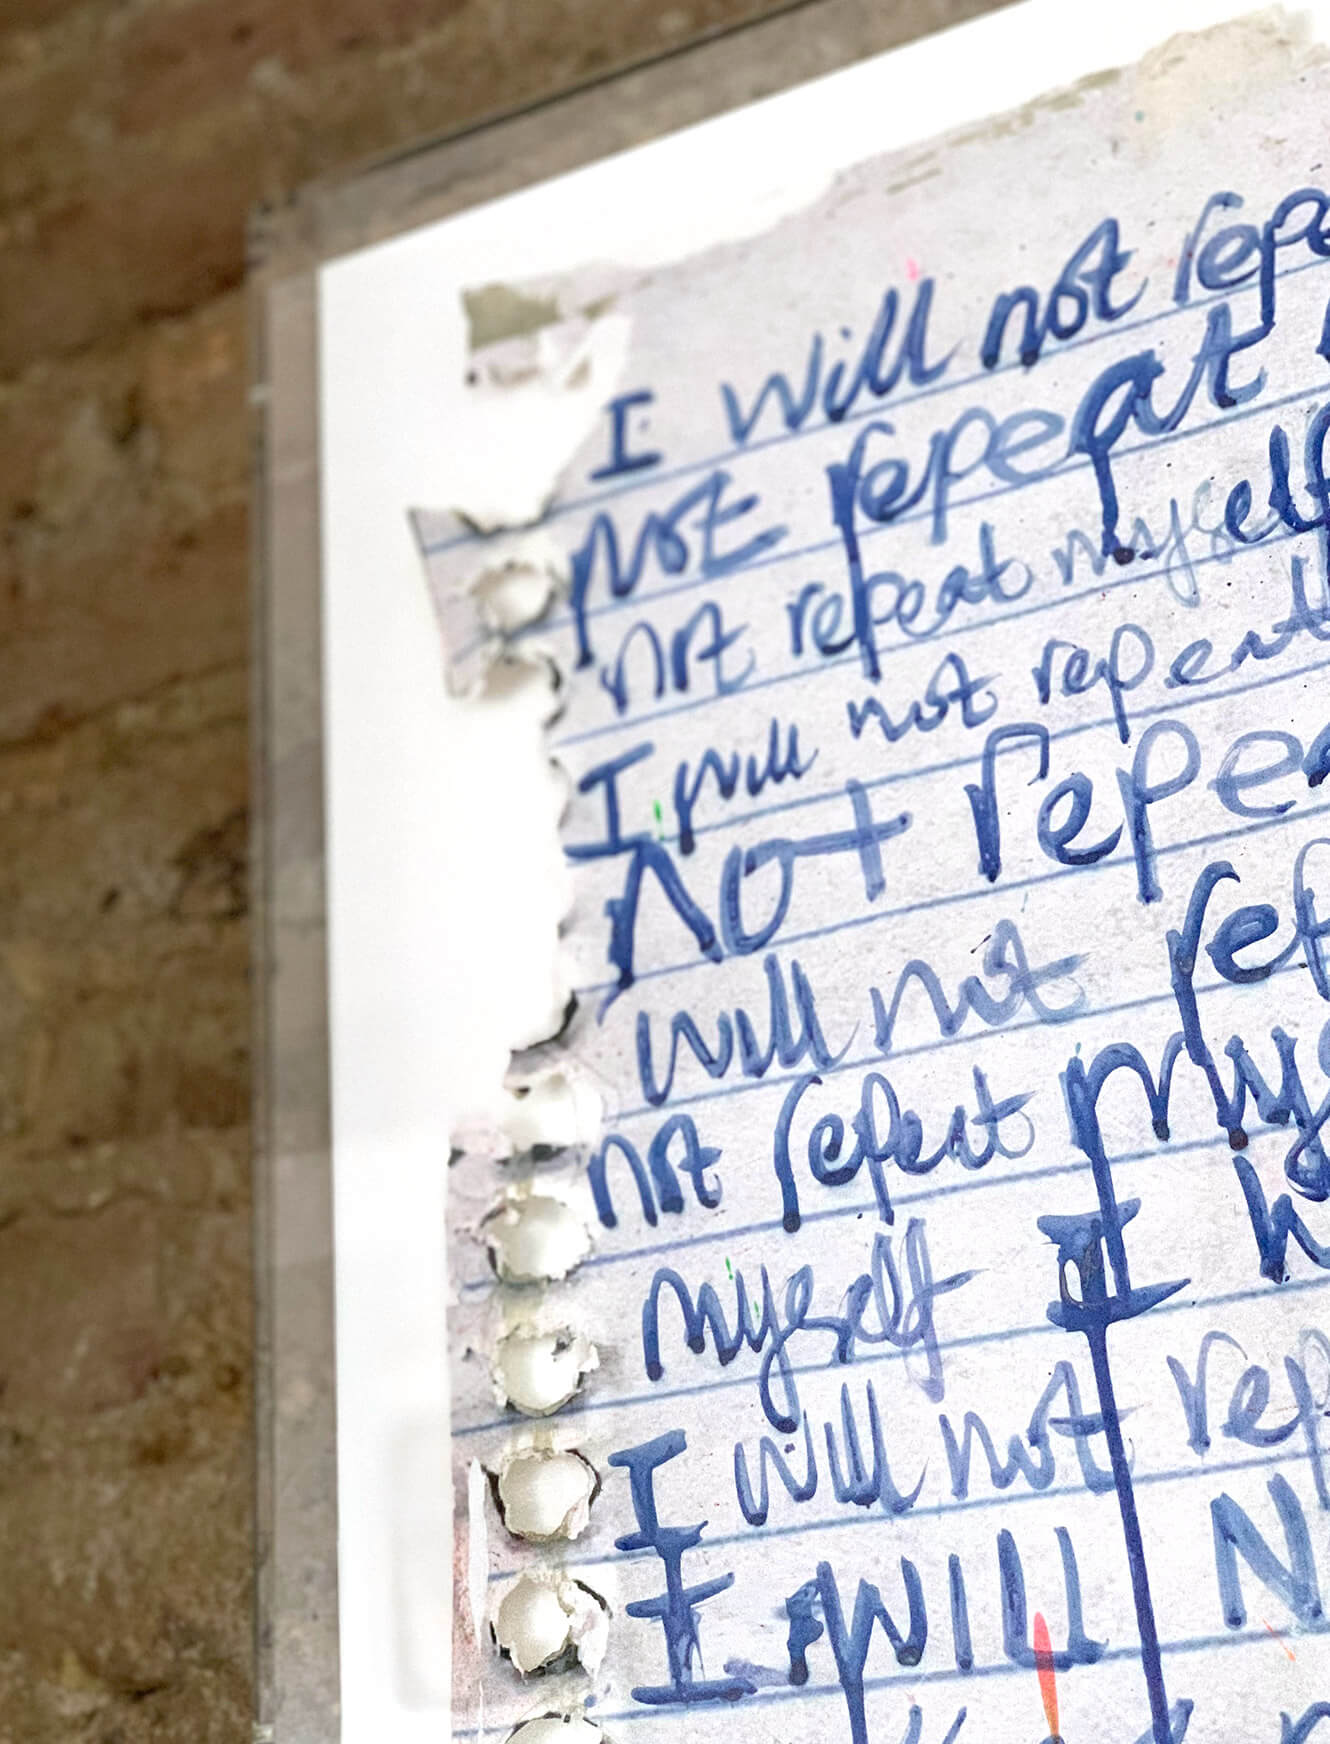 I will not repe
not repeat
not repeat myself
I will not repeat
Not repea
will not rep
not repeat mys
myself I
I will not rep
I WILL N